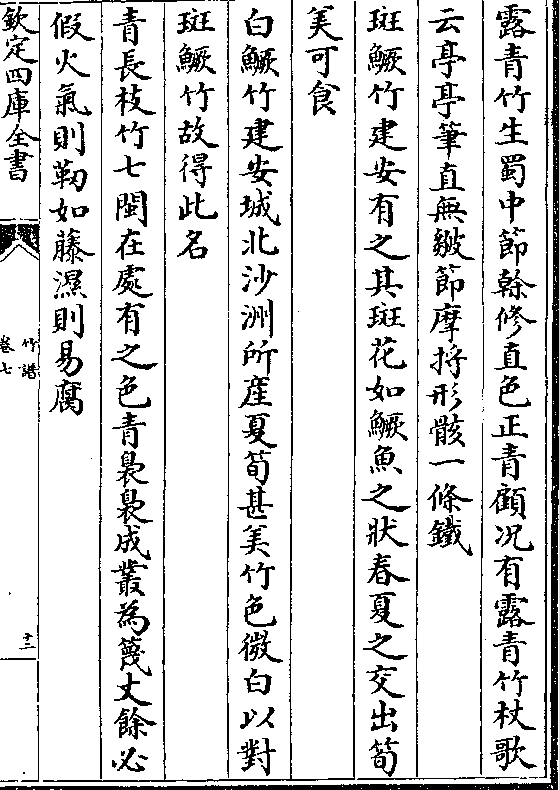 露青竹生蜀中節榦修直色正青顧况有露青竹杖歌
云亭亭筆直無皴節摩捋形骸一條鐵
斑鱖竹建安有之其斑花如鱖魚之狀春夏之交出筍
美可食
白鱖竹建安城北沙洲所產夏筍甚美竹色微白以對
斑鱖竹故得此名
青長枝竹七閩在處有之色青裊裊成叢為篾丈餘必
假火氣則靭如藤濕則易腐
欽定四庫全書
竹譜
卷七
十二